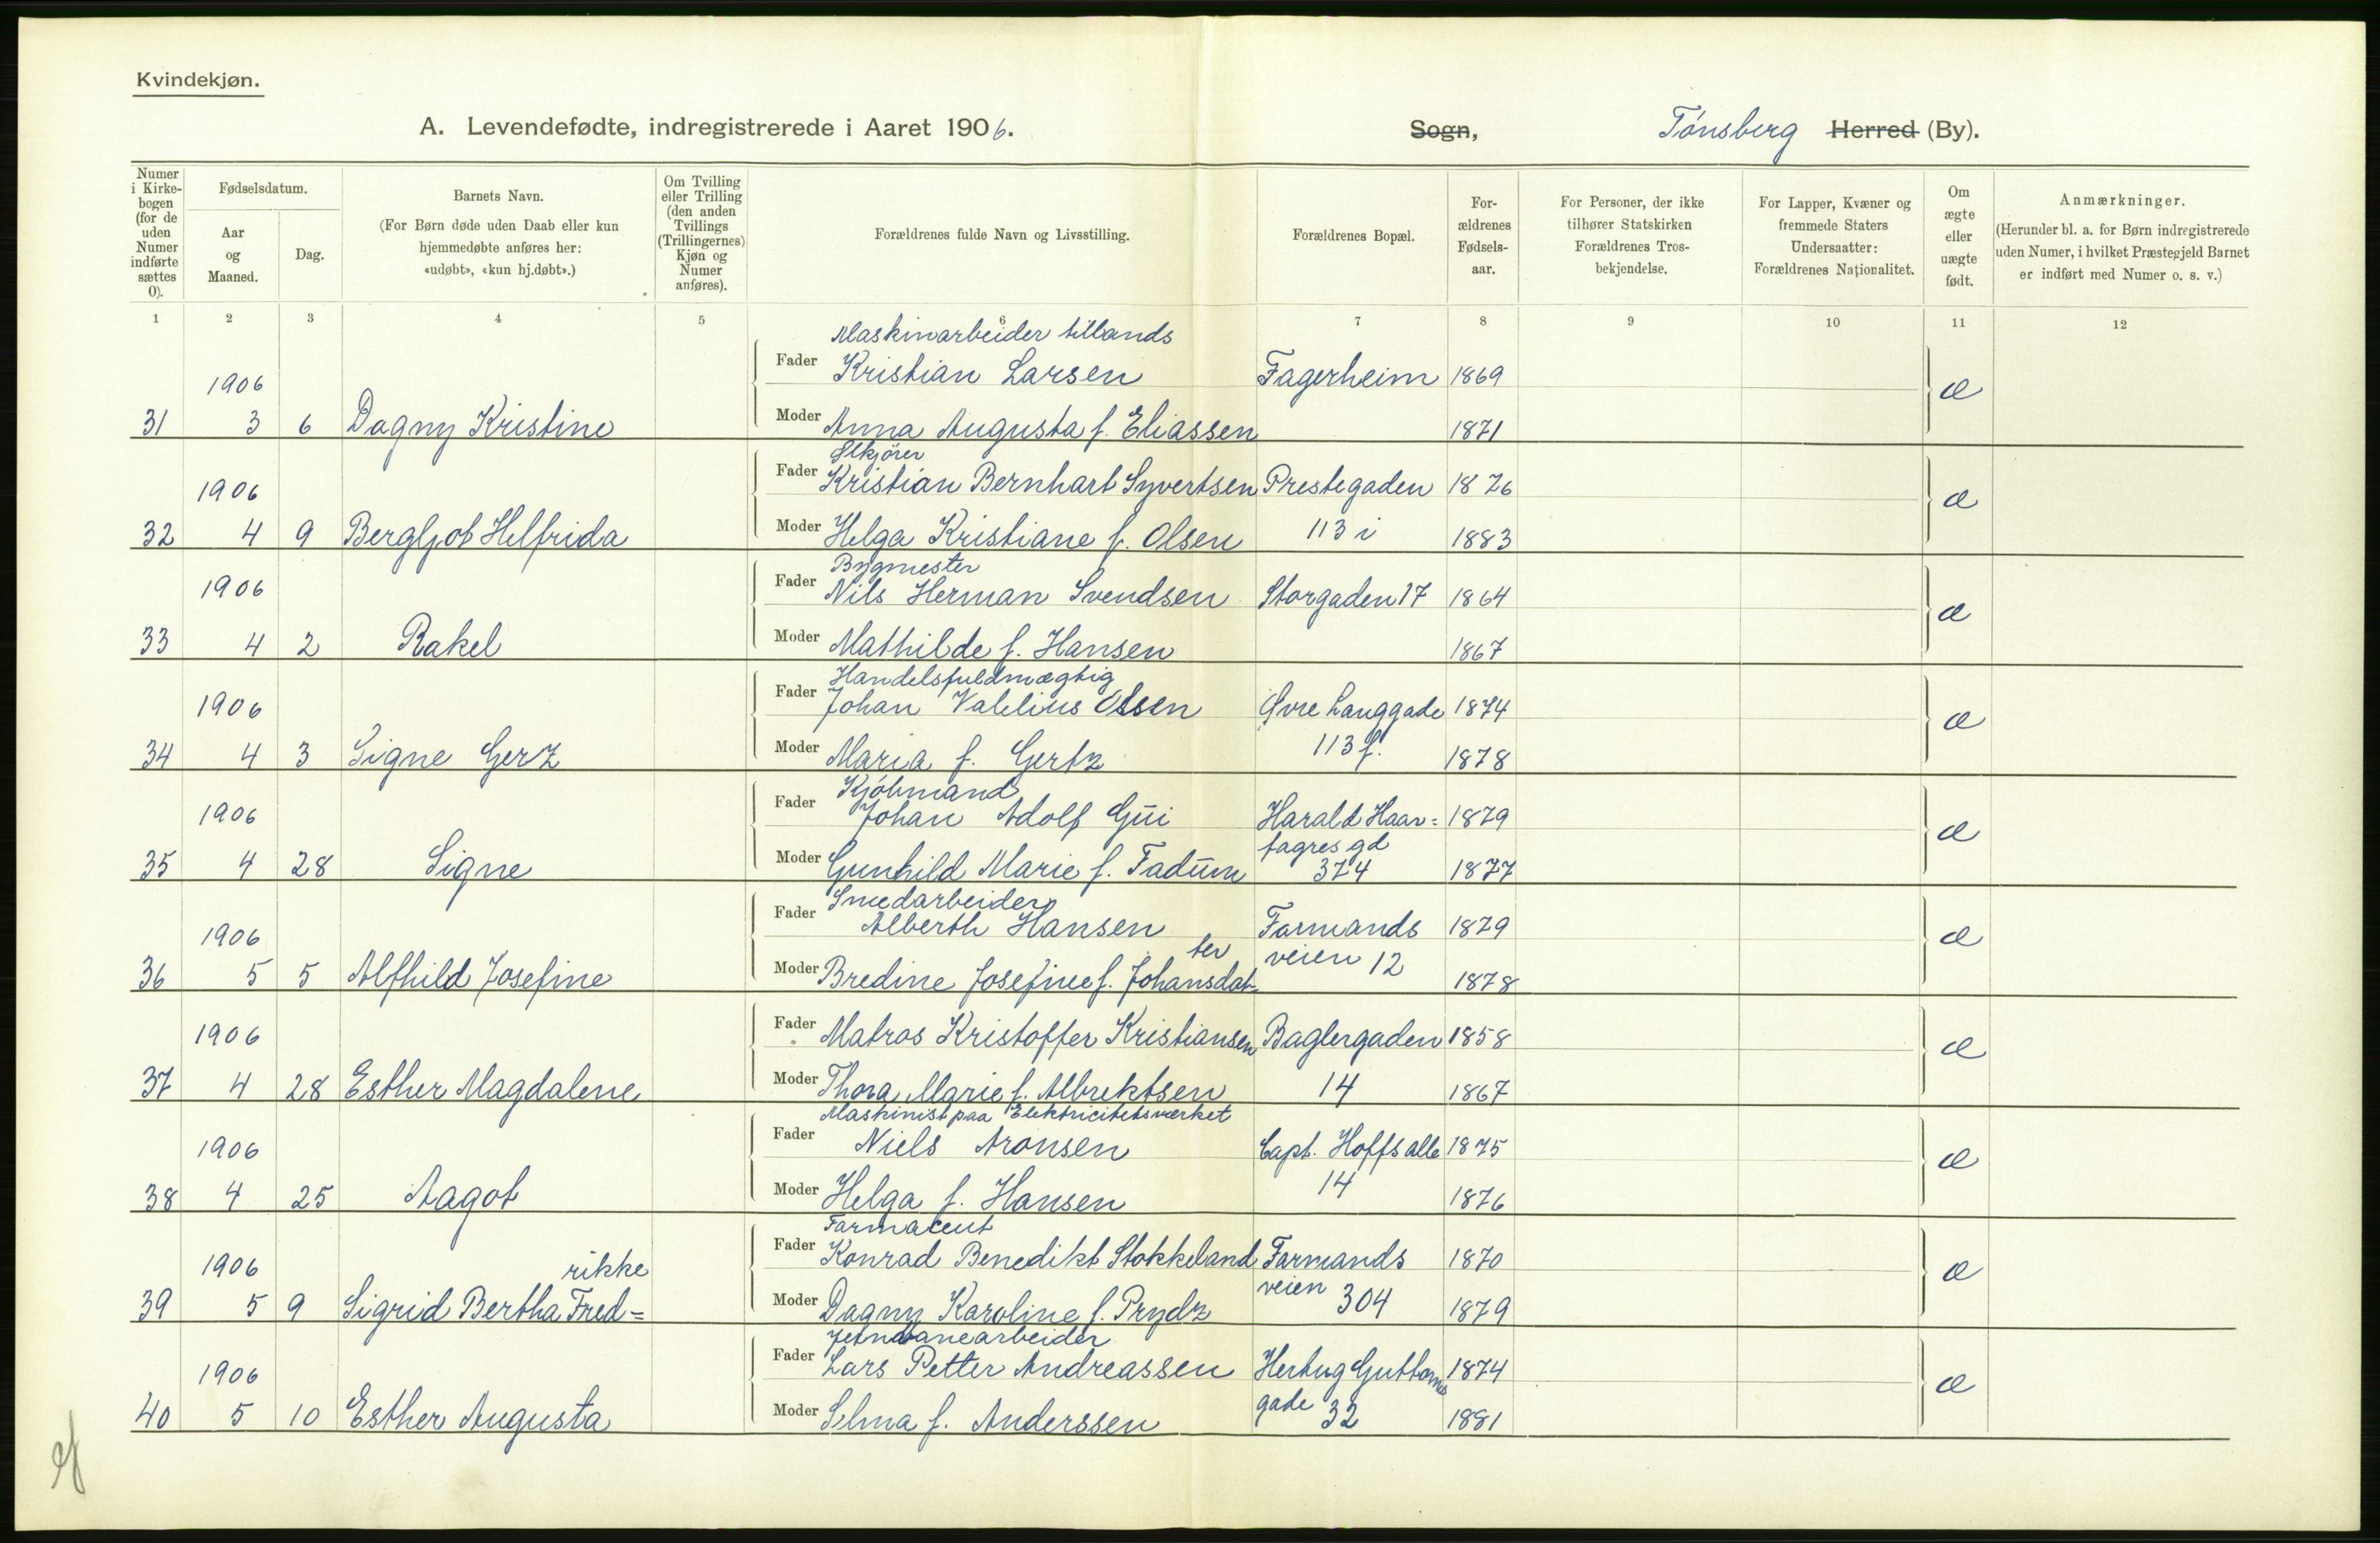 Kvindekjøn.
A. Levendefødte, indregistrerede i Aaret 1906. Sogn, Tønsberg Herred (By).
Numer i Kirke-bogen (for de uden Numer indførte sættes 0).
Fødselsdatum.
Aar og Maaned.
Dag.
Barnets Navn.
(For Børn døde uden Daab eller kun hjemmedøbte anføres her: «udøbt», «kun hj.døbt».)
Om Tvilling eller Trilling (den anden Tvillings (Trillingernes) Kjøn og Numer anføres).
Forældrenes fulde Navn og Livsstilling.
Forældrenes Bopæl.
For-ældrenes Fødsels-aar.
For Personer, der ikke tilhører Statskirken Forældrenes Tros-bekjendelse.
For Lapper, Kvæner og fremmede Staters Undersaatter: Forældrenes Nationalitet.
Om ægte eller uægte født.
Anmærkninger.
(Herunder bl. a. for Børn indregistrerede uden Numer, i hvilket Præstegjeld Barnet er indført med Numer o. s. v.)
1 2 3 4 5 6 7 8 9 10 11 12
Maskinarbeider tillands
1906 Fader Kristian Larsen Fagerheim 1869 æ
31 3 6 Dagny Kristine Moder Anna Augusta f. Eliassen 1871
Ølkjører
1906 Fader Kristian Bernhart Syvertsen Prestegaden 1876 æ
32 4 9 Bergljot Helfrida Moder Helga Kristiane f. Olsen 113 i 1883
Bygmester
1906 Fader Nils Herman Svendsen Storgaden 17 1864 æ
33 4 2 Rakel Moder Mathilde f. Hansen 1867
Handelsfuldmægtig
1906 Fader Johan Valelius Olsen Øvre Langgade 1874 æ
34 4 3 Signe Gerz Moder Maria f. Gertz 113 f. 1878
Kjøbmand
1906 Fader Johan Adolf Gui Harald Haar= 1879 æ
fagres gd
35 4 28 Signe Moder Gunhild Marie f. Fadum 374 1877
Smedarbeider
1906 Fader Alberth Hansen Farmands 1879 æ
ter veien 12
36 5 5 Alfhild Josefine Moder Bredine Josefine f. Johansdat= 1878
1906 Fader Matros Kristoffer Kristiansen Baglergaden 1858 æ
37 4 28 Esther Magdalene Moder Thora Marie f. Albrektsen 14 1867
Maskinist paa Elektricitetsværket
1906 Fader Niels Aronsen Capt. Hoffs alle 1875 æ
38 4 25 Aagot Moder Helga f. Hansen 14 1876
Farmaceut
1906 Fader Konrad Benedikt Stokkeland Farmands 1870 æ
rikke veien
39 5 9 Sigrid Bertha Fred= Moder Dagny Karoline f. Prydz 304 1879
Jernbanearbeider
1906 Fader Lars Petter Andreassen Hertug Guttorms 1874 æ
gade
40 5 10 Esther Augusta Moder Selma f. Anderssen 32 1881